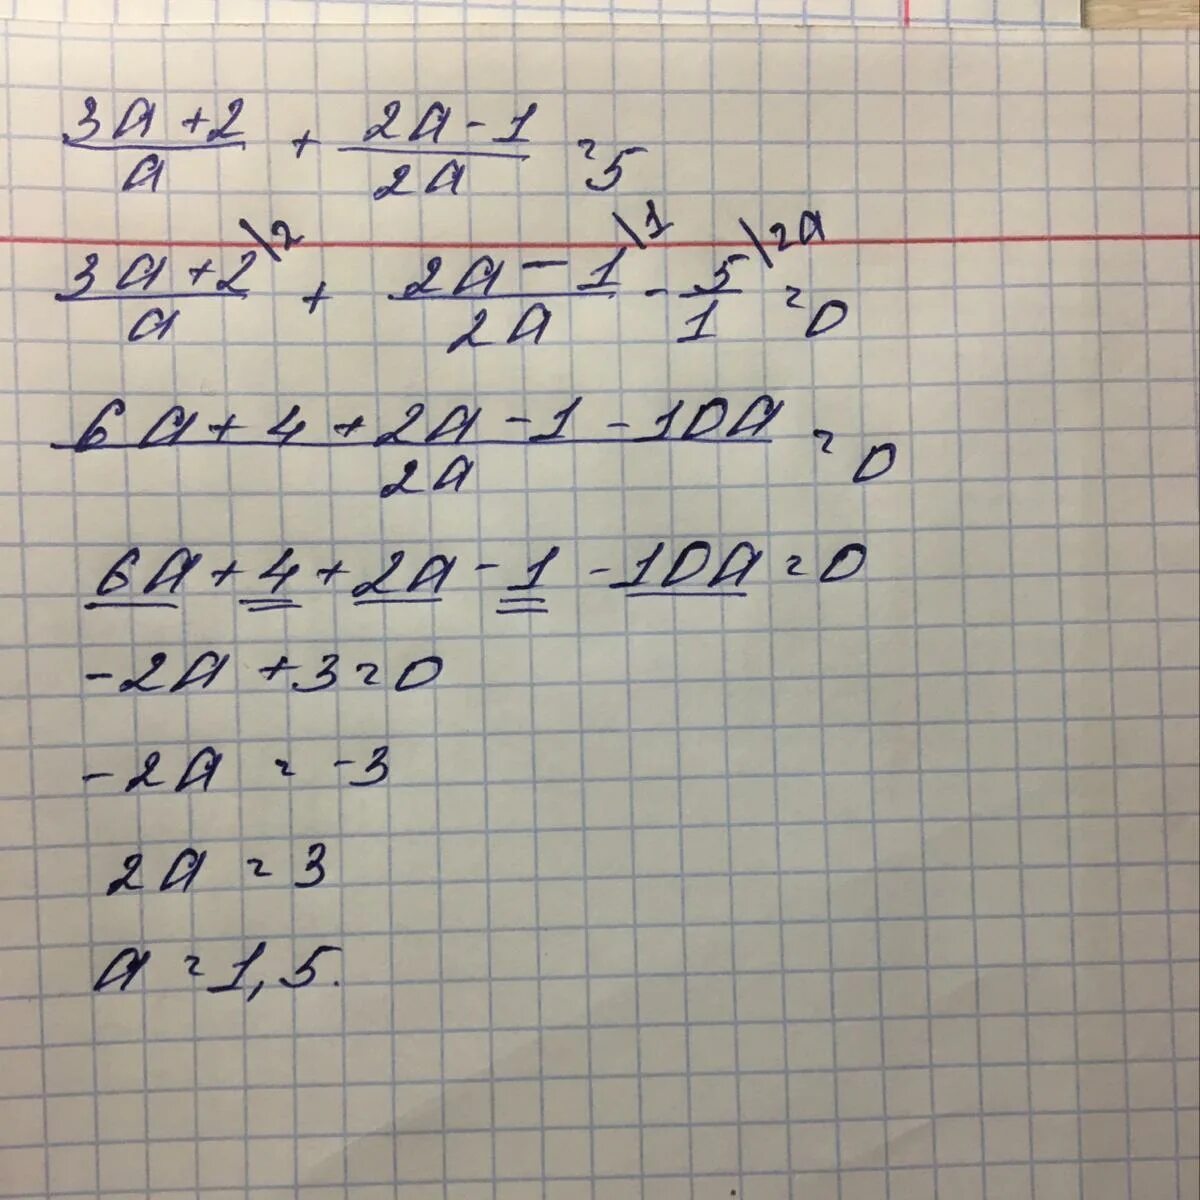 (3a+2)/a + (2a-1)/2a = 5
(3a+2)/a \2 + (2a-1)/2a \1 - 5/1 \2a = 0
(6a+4+2a-1-10a)/2a = 0
6a+4+2a-1-10a=0
-2a+3=0
-2a = -3
2a = 3
a = 1,5.